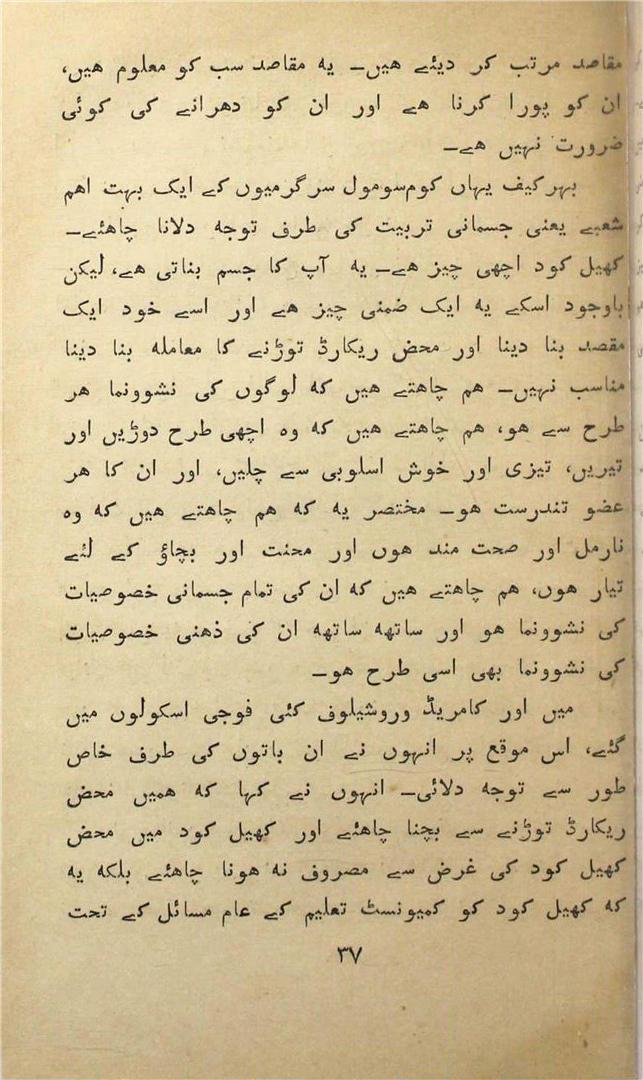 مقاصد مرتب کر دیئے ہیں۔ یہ مقاصد سب کو معلوم ہیں،
ان کو پورا کرنا ہے اور ان کو دھرانے کی کوئی
ضرورت نہیں ہے۔
بہرکیف یہاں کوم‌سومول سرگرمیوں کے ایک بہت اہم
شعبے یعنی جسمانی تربیت کی طرف توجہ دلانا چاہئے۔
کھیل کود اچھی چیز ہے۔ یہ آپ کا جسم بناتی ہے، لیکن
باوجود اسکے یہ ایک ضمنی چیز ہے اور اسے خود ایک
مقصد بنا دینا اور محض ریکارڈ توڑنے کا معاملہ بنا دینا
مناسب نہیں۔ ہم چاہتے ہیں کہ لوگوں کی نشوونما ہر
طرح سے ہو، ہم چاہتے ہیں کہ وہ اچھی طرح دوڑیں اور
تیریں، تیزی اور خوش اسلوبی سے چلیں، اور ان کا ہر
عضو تندرست ہو۔ مختصر یہ کہ ہم چاہتے ہیں کہ وہ
نارمل اور صحت مند ہوں اور محنت اور بچاؤ کے لئے
تیار ہوں، ہم چاہتے ہیں کہ ان کی تمام جسمانی خصوصیات
کی نشوونما ہو اور ساتھہ ساتھہ ان کی ذہنی خصوصیات
کی نشوونما بھی اسی طرح ہو۔
میں اور کامریڈ وروشیلوف کئی فوجی اسکولوں میں
گئے، اس موقع پر انہوں نے ان باتوں کی طرف خاص
طور سے توجہ دلائی۔ انہوں نے کہا کہ ہمیں محض
ریکارڈ توڑنے سے بچنا چاہئے اور کھیل کود میں محض
کھیل کود کی غرض سے مصروف نہ ہونا چاہئے بلکہ یہ
کہ کھیل کود کو کمیونسٹ تعلیم کے عام مسائل کے تحت
۳۷